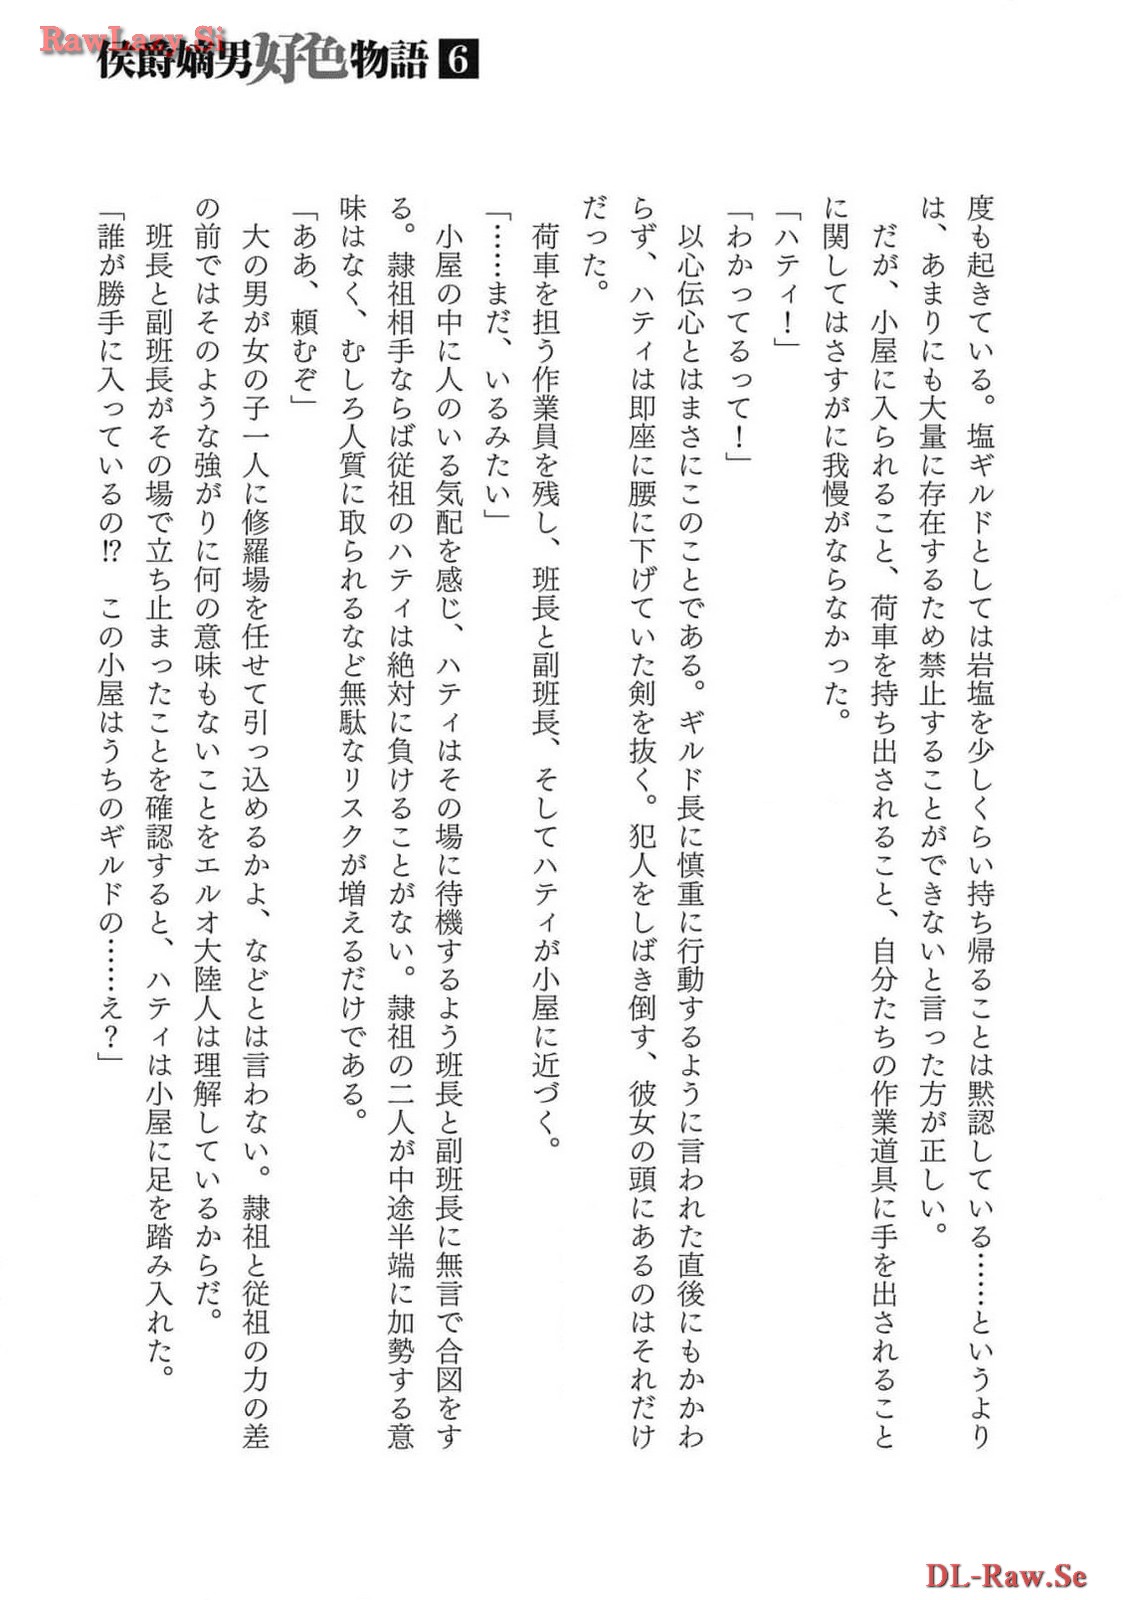 RawLazy.Si
侯爵嫡男好色物語 6
度も起きている。塩ギルドとしては岩塩を少しくらい持ち帰ることは黙認している……というより
は、あまりにも大量に存在するため禁止することができないと言った方が正しい。
だが、小屋に入られること、荷車を持ち出されること、自分たちの作業道具に手を出されること
に関してはさすがに我慢がならなかった。
「ハティ！」
「わかってるって！」
以心伝心とはまさにこのことである。ギルド長に慎重に行動するように言われた直後にもかかわ
らず、ハティは即座に腰に下げていた剣を抜く。犯人をしばき倒す、彼女の頭にあるのはそれだけ
だった。
荷車を担う作業員を残し、班長と副班長、そしてハティが小屋に近づく。
「……まだ、いるみたい」
小屋の中に人のいる気配を感じ、ハティはその場に待機するよう班長と副班長に無言で合図をす
る。隷祖相手ならば従祖のハティは絶対に負けることがない。隷祖の二人が中途半端に加勢する意
味はなく、むしろ人質に取られるなど無駄なリスクが増えるだけである。
「ああ、頼むぞ」
大の男が女の子一人に修羅場を任せて引っ込めるかよ、などとは言わない。隷祖と従祖の力の差
の前ではそのような強がりに何の意味もないことをエルオ大陸人は理解しているからだ。
班長と副班長がその場で立ち止まったことを確認すると、ハティは小屋に足を踏み入れた。
「誰が勝手に入っているの!?　この小屋はうちのギルドの……え？」
DL-Raw.Se